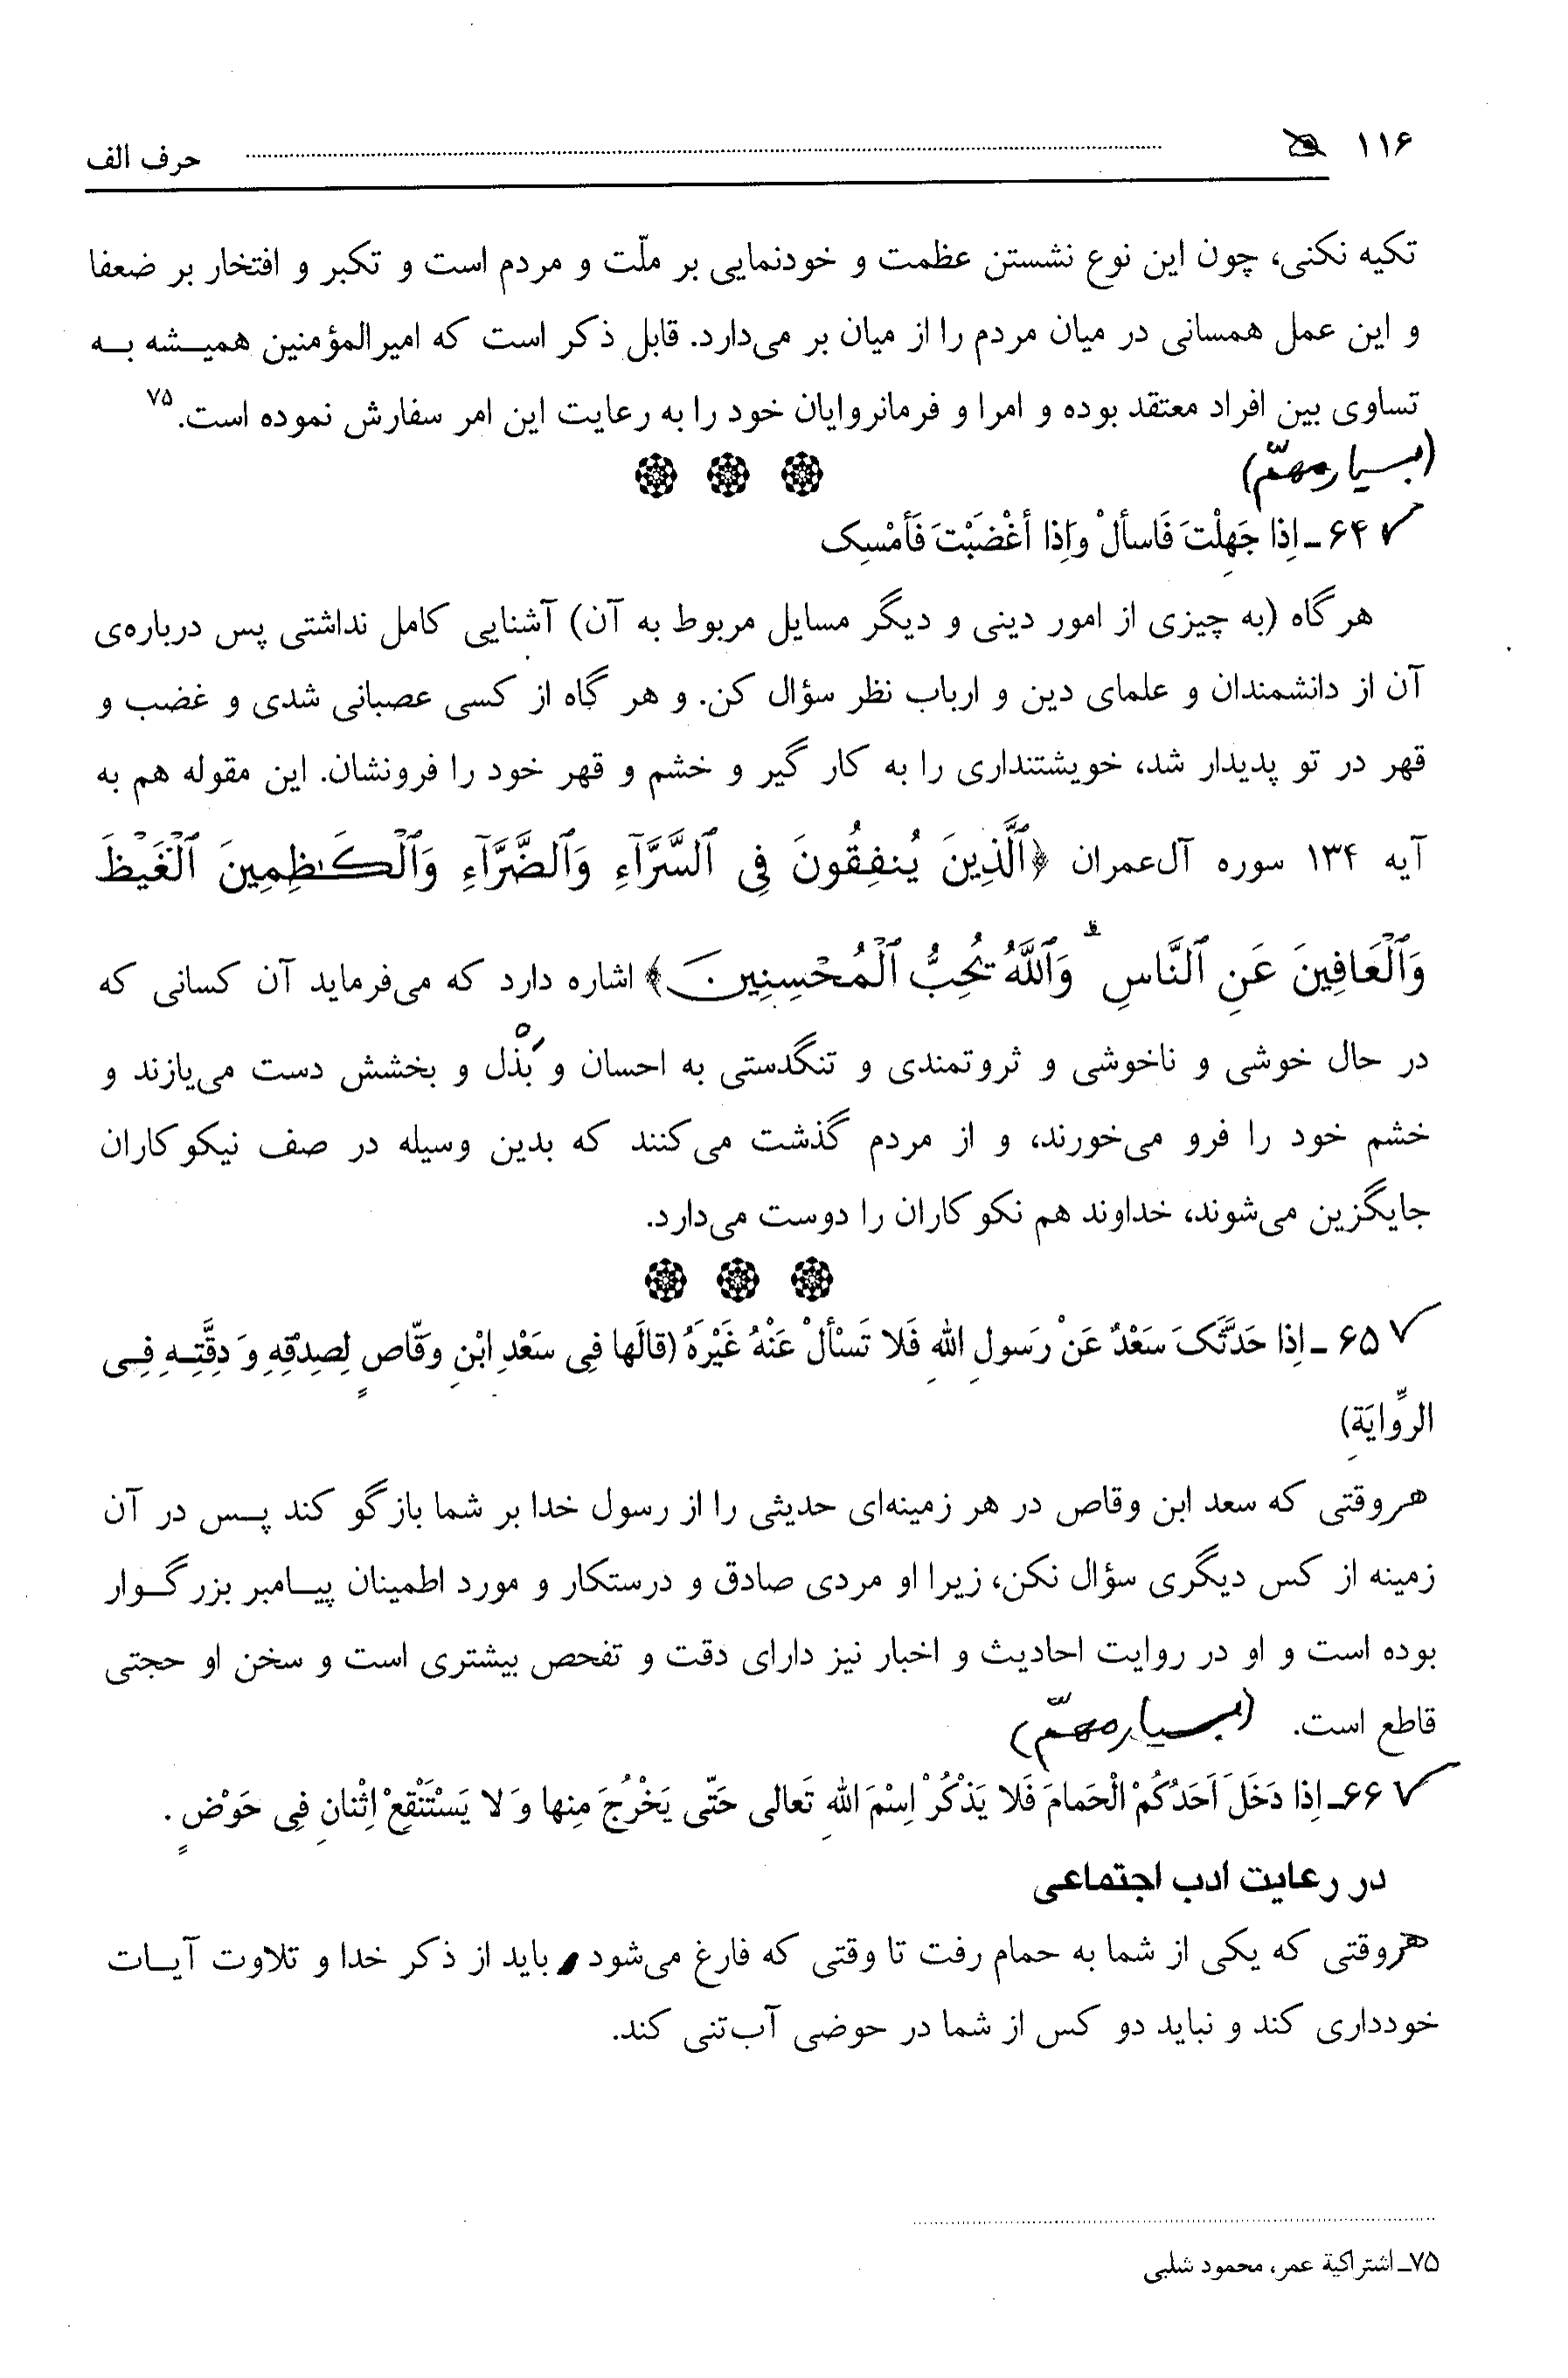 ۱۱۶ حرف الف
تکیه نکنی، چون این نوع نشستن عظمت و خودنمایی بر ملّت و مردم است و تکبر و افتخار بر ضعفا
و این عمل همسانی در میان مردم را از میان بر می‌دارد. قابل ذکر است که امیرالمؤمنین همیـشه بـه
تساوی بین افراد معتقد بوده و امرا و فرمانروایان خود را به رعایت این امر سفارش نموده است.۷۵
(بسیار مهمّ)
✓ ۶۴ـ اِذا جَهِلْتَ فَاسألْ وَاِذا أغْضَبْتَ فَأمْسِک
هر گاه (به چیزی از امور دینی و دیگر مسایل مربوط به آن) آشنایی کامل نداشتی پس درباره‌ی
آن از دانشمندان و علمای دین و ارباب نظر سؤال کن. و هر گاه از کسی عصبانی شدی و غضب و
قهر در تو پدیدار شد، خویشتنداری را به کار گیر و خشم و قهر خود را فرونشان. این مقوله هم به
آیه ۱۳۴ سوره آل‌عمران ﴿ٱلَّذِينَ يُنفِقُونَ فِى ٱلسَّرَّآءِ وَٱلضَّرَّآءِ وَٱلْكَـٰظِمِينَ ٱلْغَيْظَ
وَٱلْعَافِينَ عَنِ ٱلنَّاسِ ۗ وَٱللَّهُ يُحِبُّ ٱلْمُحْسِنِينَ﴾ اشاره دارد که می‌فرماید آن کسانی که
در حال خوشی و ناخوشی و ثروتمندی و تنگدستی به احسان و بَذْل و بخشش دست می‌یازند و
خشم خود را فرو می‌خورند، و از مردم گذشت می‌کنند که بدین وسیله در صف نیکوکاران
جایگزین می‌شوند، خداوند هم نکوکاران را دوست می‌دارد.
✓ ۶۵ ـ اِذا حَدَّثَکَ سَعْدٌ عَنْ رَسولِ اللهِ فَلا تَسْألْ عَنْهُ غَیْرَهُ (قالَها فِی سَعْدِ ابْنِ وَقّاصٍ لِصِدْقِهِ وَ دِقَّتِـهِ فِـی
الرِّوایَةِ)
هروقتی که سعد ابن وقاص در هر زمینه‌ای حدیثی را از رسول خدا بر شما بازگو کند پـس در آن
زمینه از کس دیگری سؤال نکن، زیرا او مردی صادق و درستکار و مورد اطمینان پیـامبر بزرگـوار
بوده است و او در روایت احادیث و اخبار نیز دارای دقت و تفحص بیشتری است و سخن او حجتی
قاطع است. (بسیار مهمّ)
✓ ۶۶ـ اِذا دَخَلَ اَحَدُکُمْ الْحَمامَ فَلا یَذْکُرْ اِسْمَ اللهِ تَعالی حَتّی یَخْرُجَ مِنها وَ لا یَسْتَنْقِعْ اِثْنانِ فِی حَوْضٍ .
در رعایت ادب اجتماعی
هروقتی که یکی از شما به حمام رفت تا وقتی که فارغ می‌شود باید از ذکر خدا و تلاوت آیـات
خودداری کند و نباید دو کس از شما در حوضی آب‌تنی کند.
۷۵ـ اشتراکیة عمر، محمود شلبی